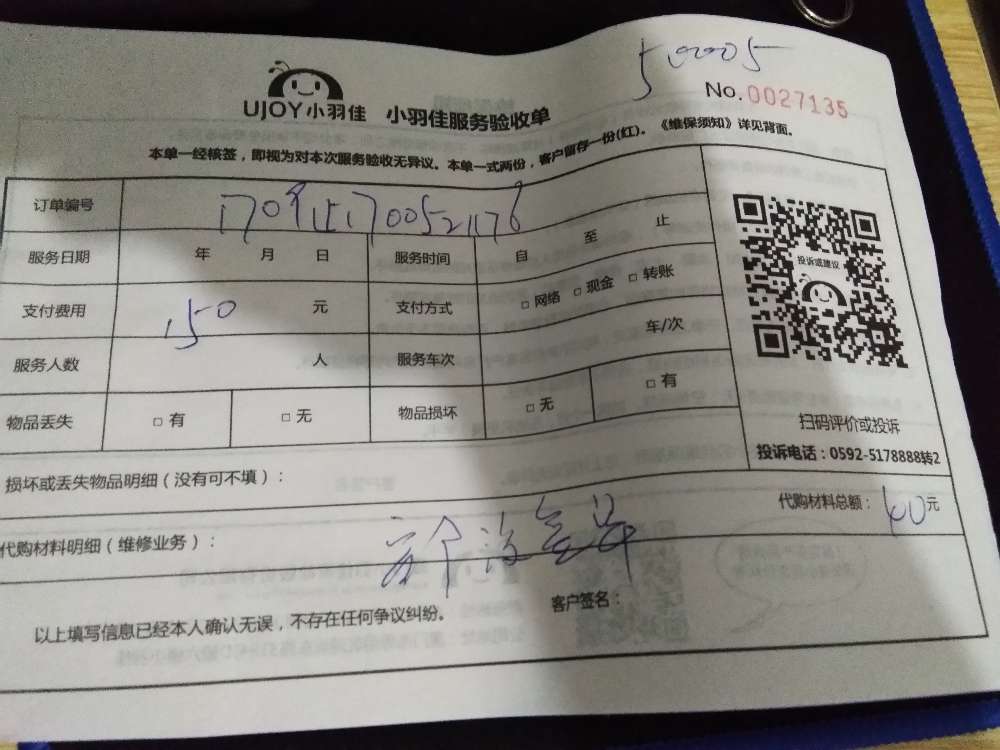 50005
No.0027135
UJOY小羽佳 小羽佳服务验收单
本单一经核签，即视为对本次服务验收无异议。本单一式两份，客户留存一份(红)。《维保须知》详见背面。
订单编号
服务日期 年 月 日 服务时间 自 至 止
支付费用 150 元 支付方式 □ 网络 □ 现金 □ 转账
服务人数 人 服务车次 车/次
物品丢失 □ 有 □ 无 物品损坏 □ 无 □ 有
投诉或建议
扫码评价或投诉
投诉电话：0592-5178888转2
损坏或丢失物品明细（没有可不填）：
代购材料明细（维修业务）： 代购材料总额： 元
以上填写信息已经本人确认无误，不存在任何争议纠纷。 客户签名：